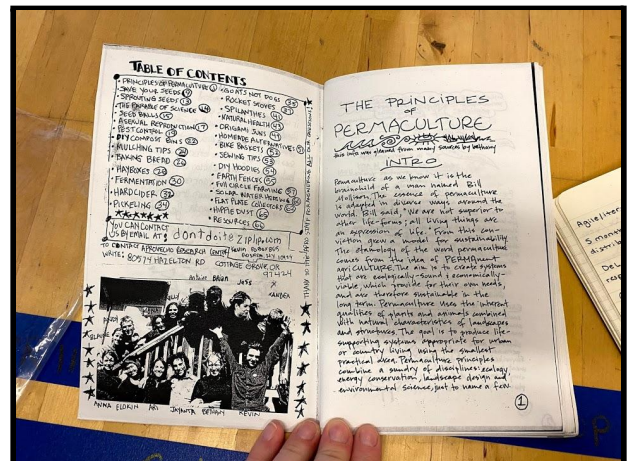 TABLE OF CONTENTS
• PRINCIPLES OF PERMACULTURE ①
• SAVE YOUR SEEDS ⑨
• SPROUTING SEEDS ⑬
• THE PARABLE OF SCIENCE
• SEED BALLS ⑮
• ASEXUAL REPRODUCTION ⑰
• PEST CONTROL ⑲
• DIY COMPOST BINS
• MULCHING TIPS
• BAKING BREAD
• HAYBOXES
• FERMENTATION ㉚
• HARD CIDER
• PICKELING
• GOATS NOT DOGS
• ROCKET STOVES
• SPILANTHES
• NATURAL HEALTH
• ORIGAMI SUNS
• HOMEMADE ALTERNATIVES
• BIKE BASKETS
• SEWING TIPS
• DIY HOODIES
• EARTH FENCES
• FULL CIRCLE FARMING
• SOLAR WATER HEATING
• FLAT PLATE COLLECTORS
• HIPPIE DUST
• RESOURCES
YOU CAN CONTACT
US BY EMAIL AT dontdoit@ziplip.com
TO CONTACT APROVECHO RESEARCH CENTER
WRITE: 80574 HAZELTON RD
COTTAGE GROVE, OR
97424
BRIAN
JOSH
AMBER
ANNA ELORIN ARI JAYANTA BETHANY KEVIN
THE PRINCIPLES
OF
PERMACULTURE
this info was gleaned from many sources by bethany
INTRO
Permaculture as we know it is the
brainchild of a man named Bill
Mollison. The essence of permaculture
is adapted in diverse ways around the
world. Bill said, "We are not superior to
other life-forms; all living things are
an expression of life." From this con-
viction grew a model for sustainability.
The etymology of the word permaculture
comes from the idea of PERMAnent
agriCULTURE. The aim is to create systems
that are ecologically-sound & economically-
viable, which provide for their own needs,
and are therefore sustainable in the
long term. Permaculture uses the inherent
qualities of plants and animals combined
with natural characteristics of landscapes
and structures. The goal is to produce life-
supporting systems appropriate for urban
or country living using the smallest
practical area. Permaculture principles
combine a sundry of disciplines: ecology,
energy conservation, landscape design and
environmental science, just to name a few.
①